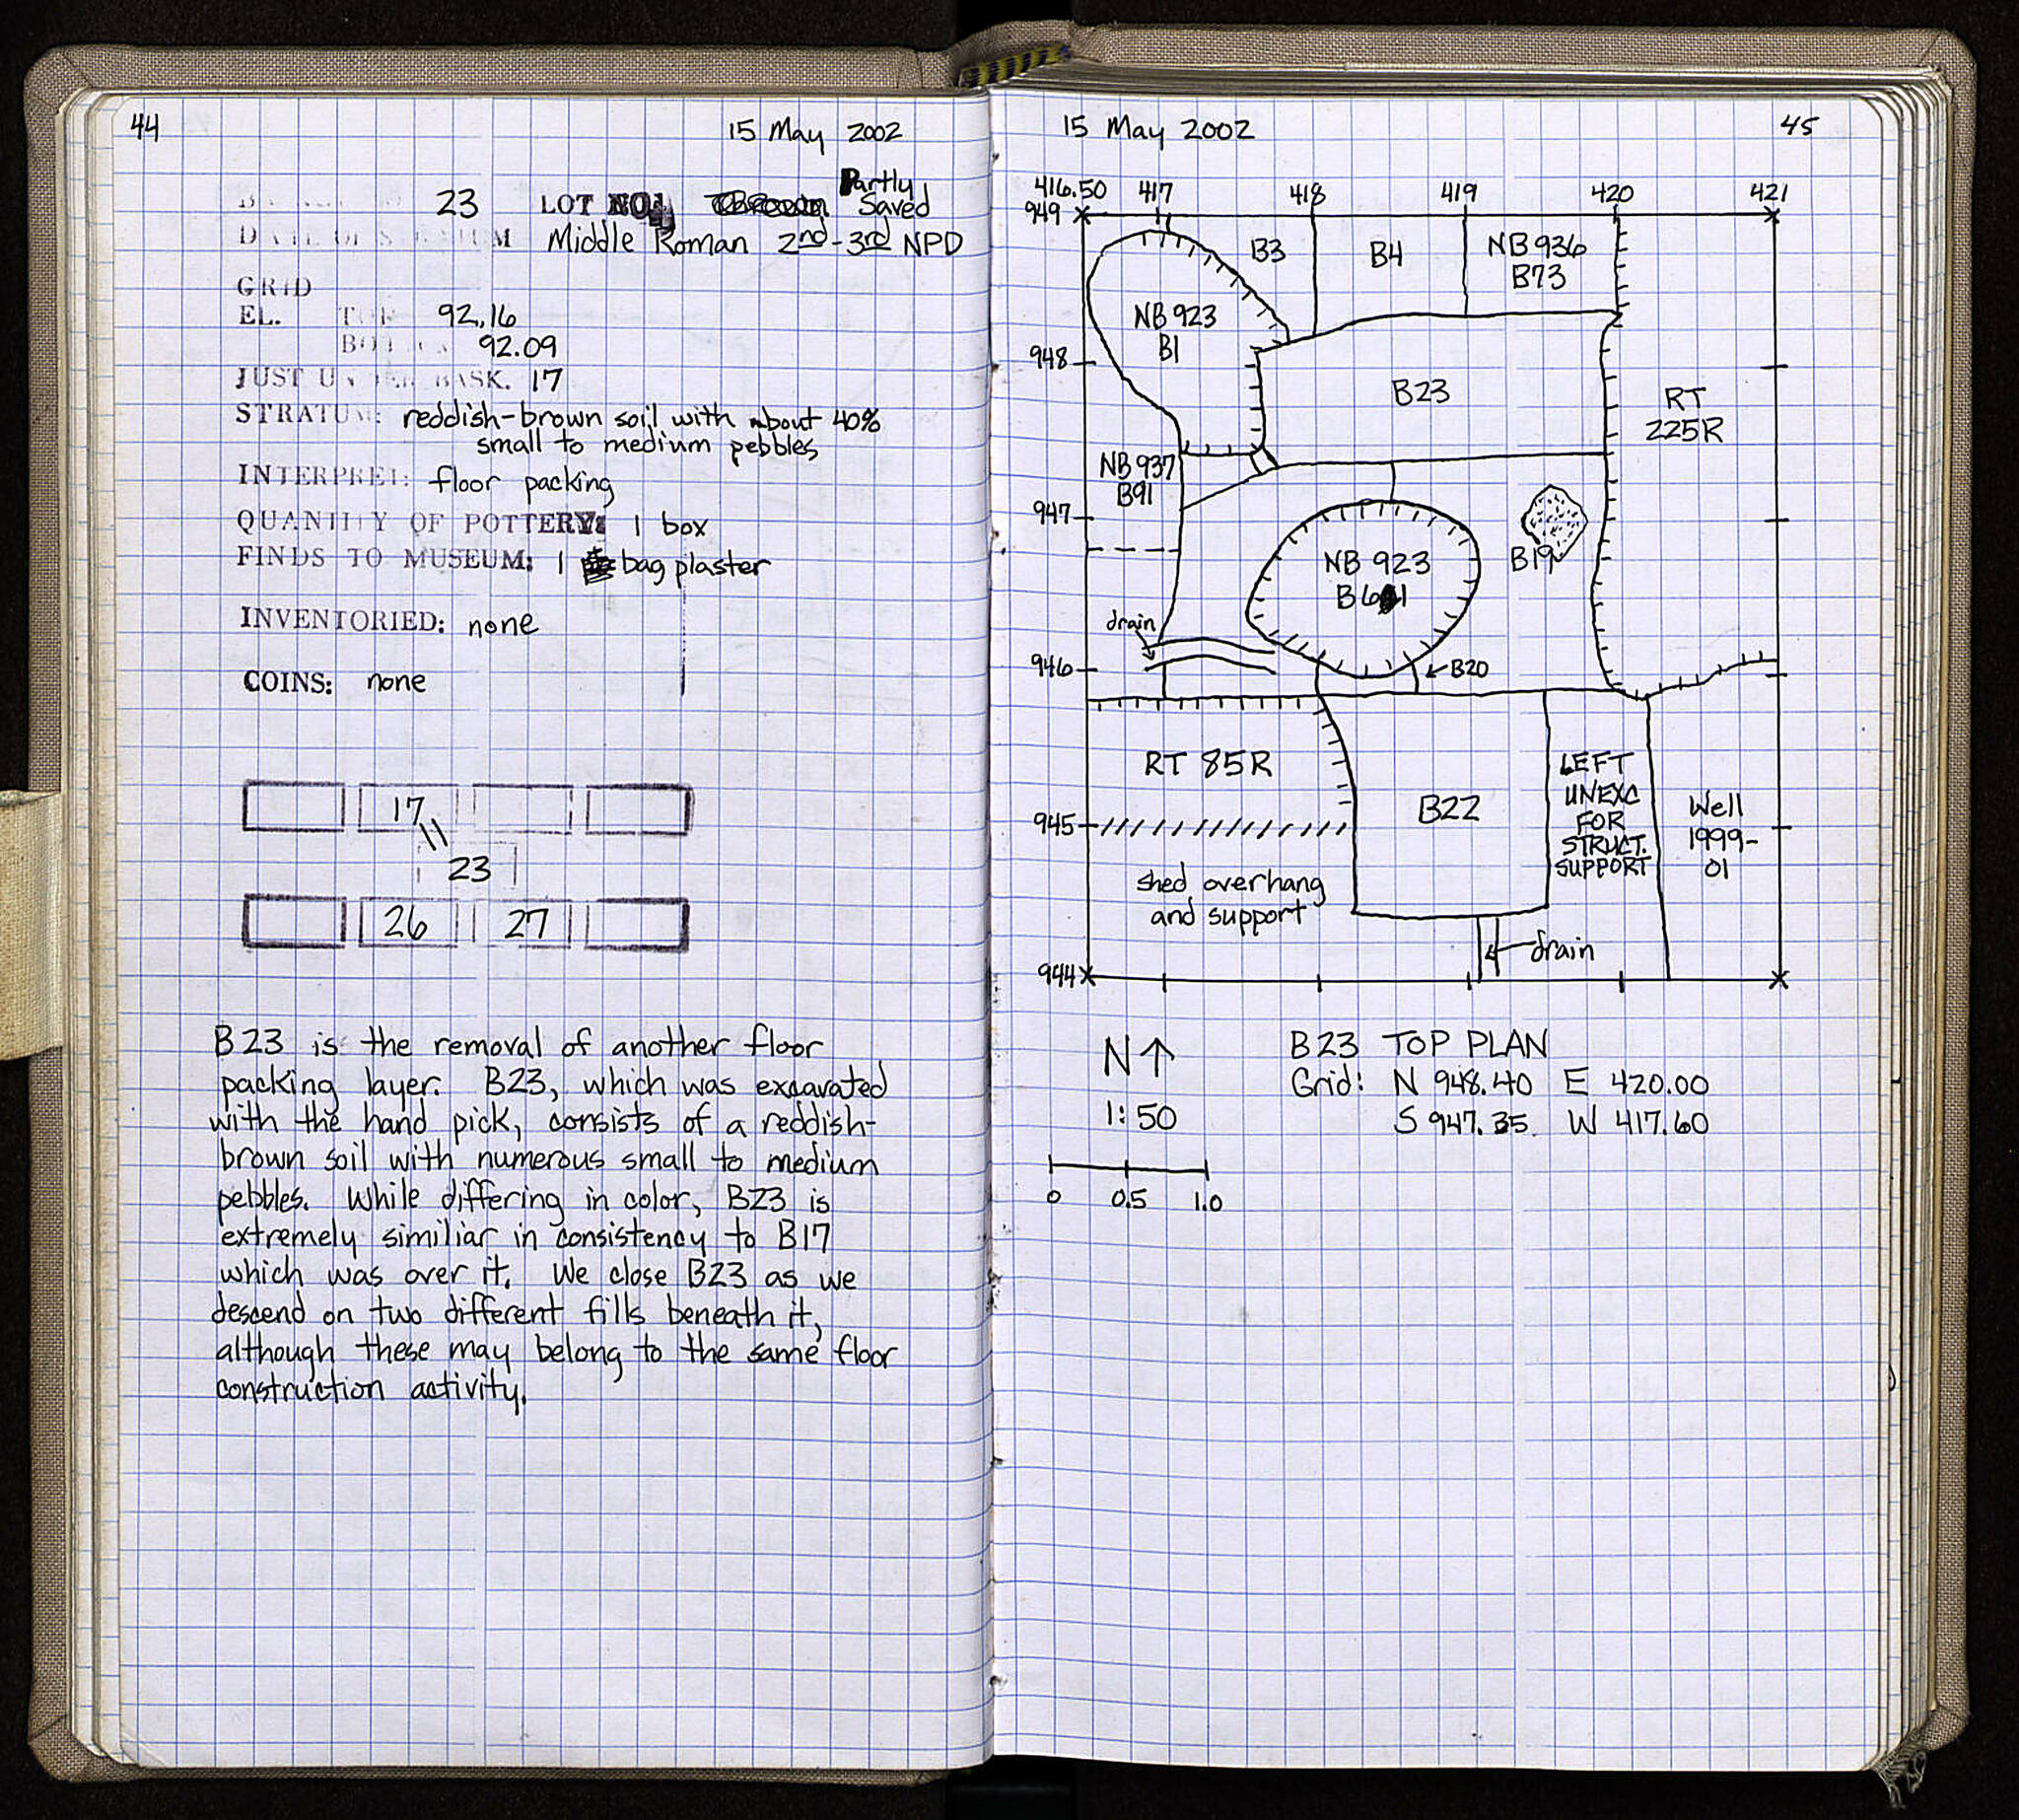 44
15 May 2002
Partly
23 LOT NO. Saved
Middle Roman 2nd-3rd NPD
GRID
EL. TOP 92.16
BOTTOM 92.09
JUST UNDER BASK. 17
STRATUM: reddish-brown soil with about 40%
small to medium pebbles
INTERPRET: floor packing
QUANTITY OF POTTERY: 1 box
FINDS TO MUSEUM: 1 bag plaster
INVENTORIED: none
COINS: none
17
23
26 27
B23 is the removal of another floor
packing layer. B23, which was excavated
with the hand pick, consists of a reddish-
brown soil with numerous small to medium
pebbles. While differing in color, B23 is
extremely similiar in consistency to B17
which was over it. We close B23 as we
descend on two different fills beneath it,
although these may belong to the same floor
construction activity.
15 May 2002
45
416.50 417 418 419 420 421
949
B3 B4 NB 936
B73
NB 923
B1
948
B23
RT
225R
NB 937
B91
947
NB 923
B61
B19
drain
946
B20
RT 85R
B22
LEFT
UNEXC
FOR
STRUCT.
SUPPORT
Well
1999-
01
945
shed overhang
and support
drain
944
N↑
1:50
0 0.5 1.0
B23 TOP PLAN
Grid: N 948.40 E 420.00
S 947.35 W 417.60